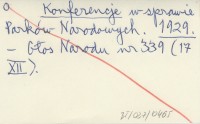 Konferencje w sprawie
Parków Narodowych. 1929.
- Głos Narodu nr 339 (17
XII).